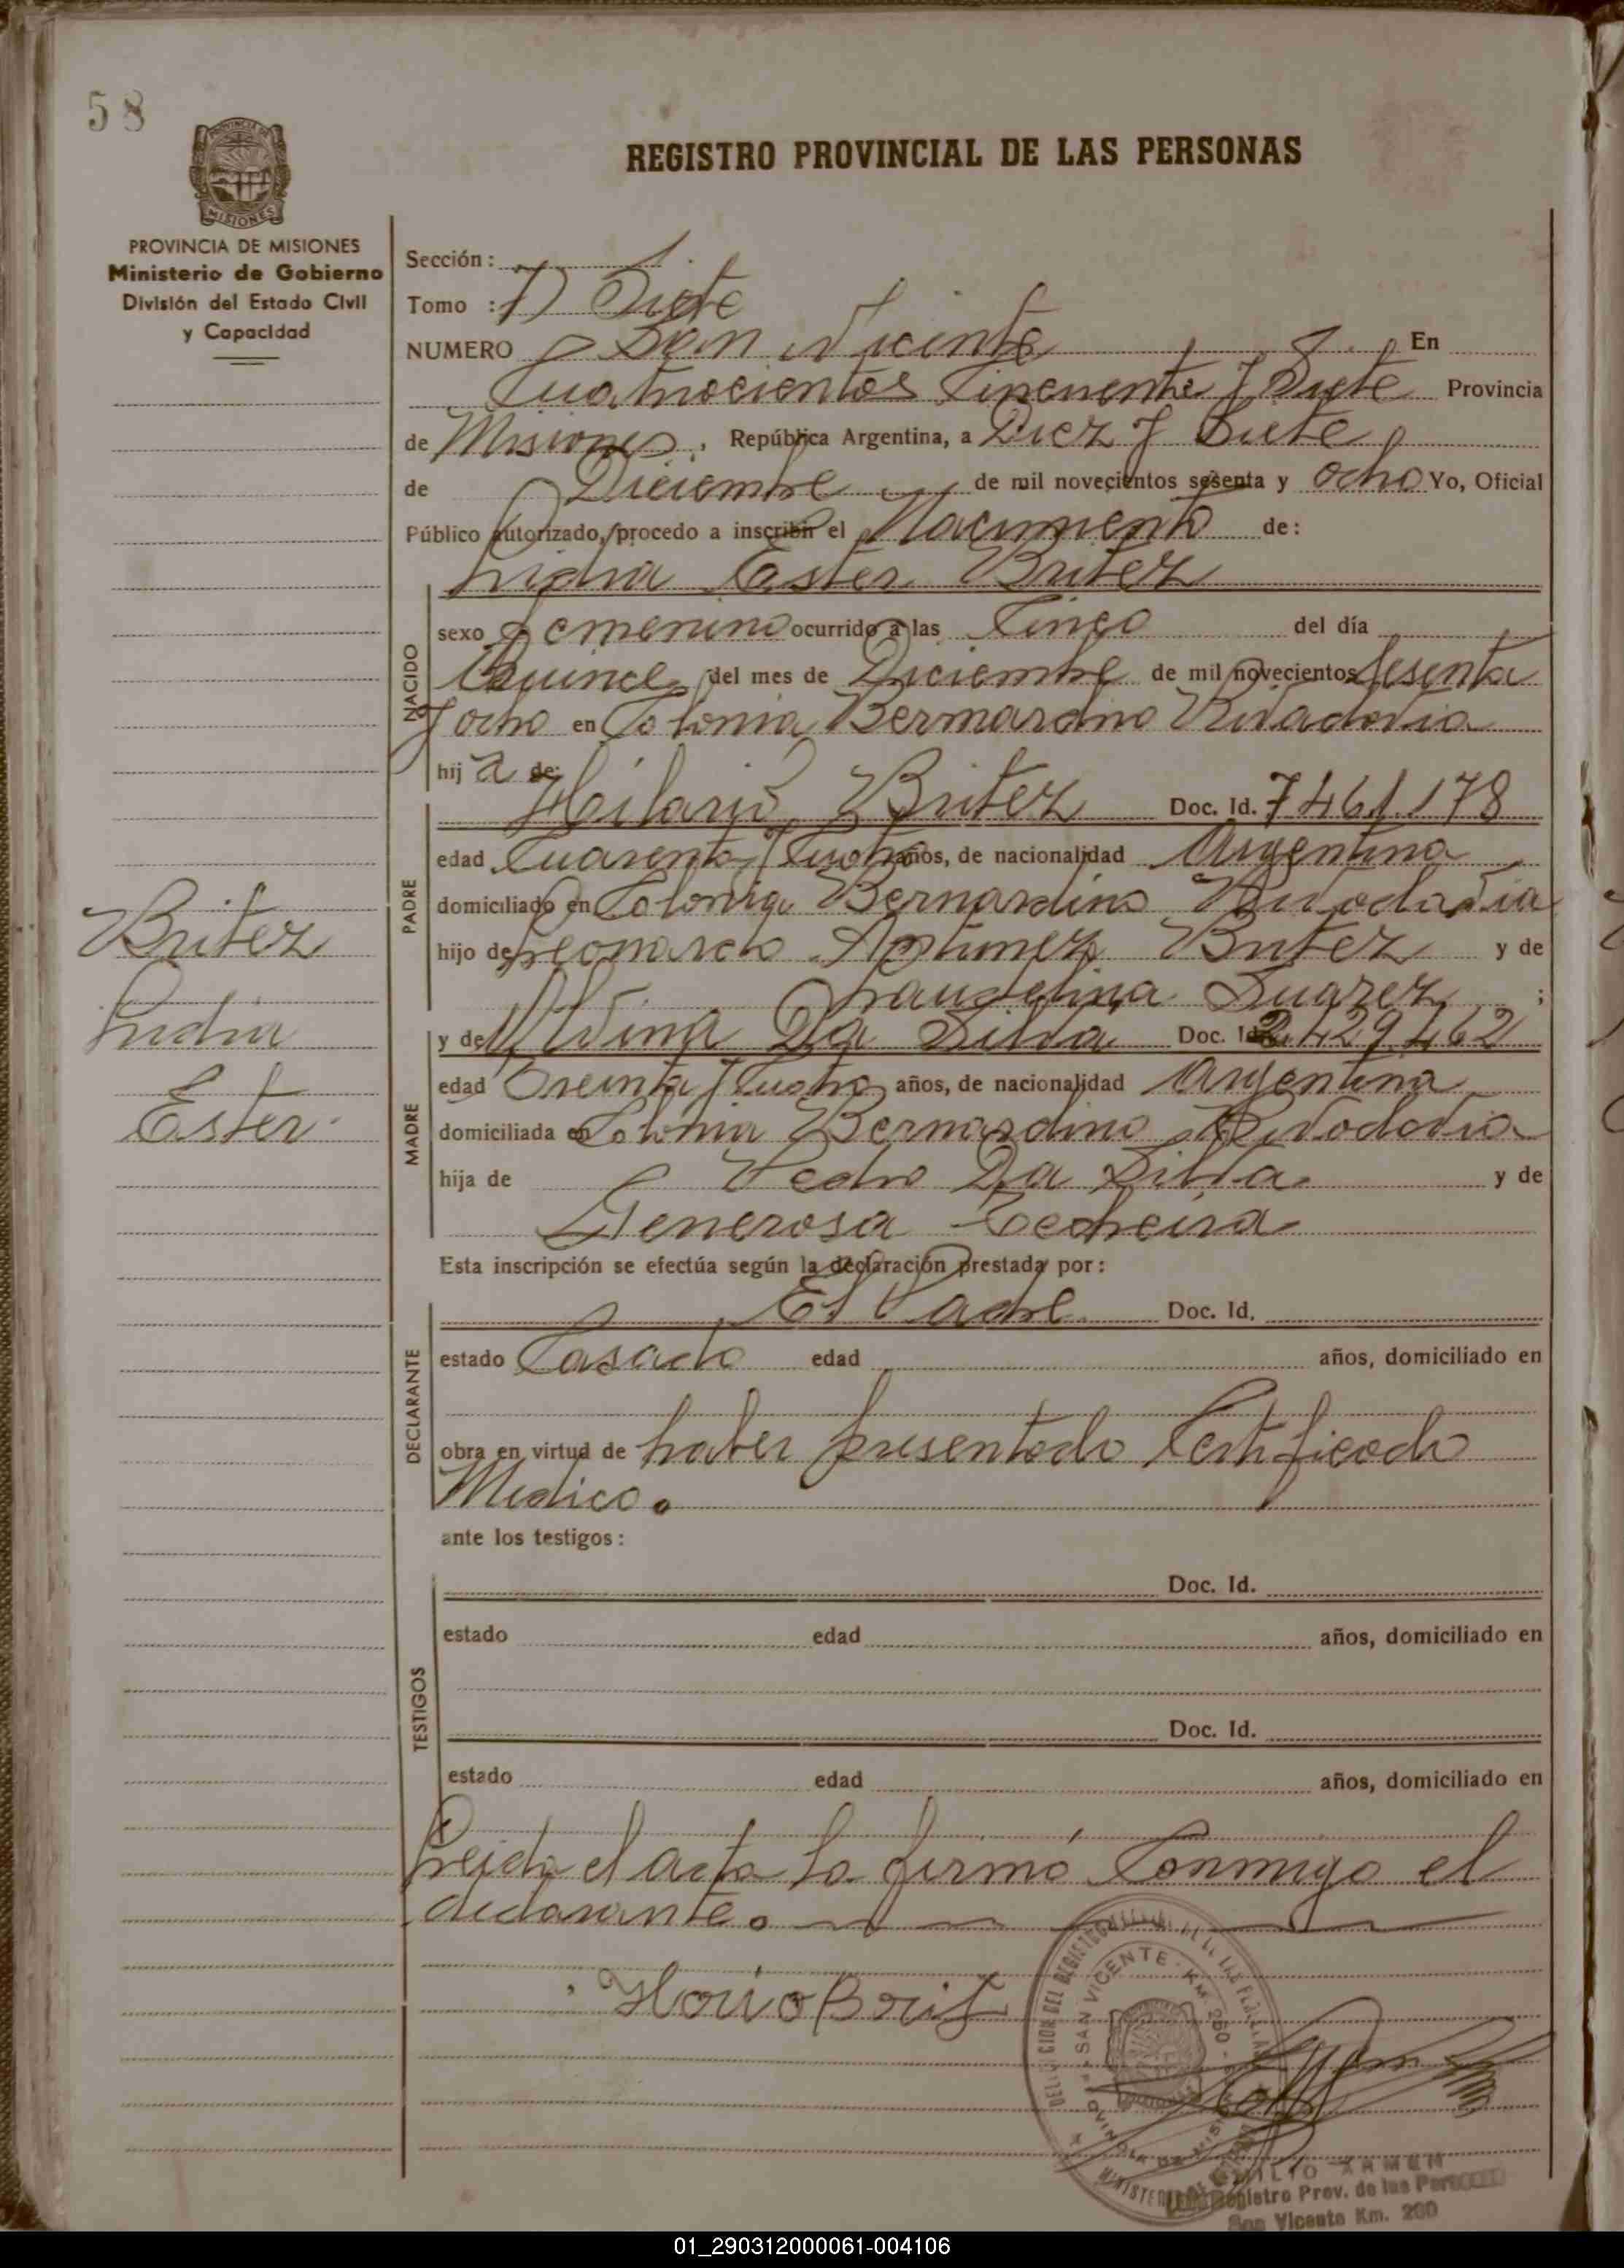 58
REGISTRO PROVINCIAL DE LAS PERSONAS
PROVINCIA DE
MISIONES
PROVINCIA DE MISIONES
Ministerio de Gobierno
División del Estado Civil
y Capacidad
Sección : 1.
Tomo : 7) Siete
NUMERO San Vicente En
Cuatrocientos Cincuenta y Siete Provincia
de Misiones, República Argentina, a Diez y Siete
de Diciembre de mil novecientos sesenta y ocho Yo, Oficial
Público autorizado, procedo a inscribir el Nacimiento de :
Lidia Ester Britez
NACIDO
sexo Femenino ocurrido a las Cinco del día
Quince del mes de Diciembre de mil novecientos Sesenta
y ocho en Colonia Bernardino Rivadavia
hij a de:
PADRE
Hilario Britez Doc. Id. 7461.178
edad Cuarenta y Cuatro años, de nacionalidad Argentina
domiciliado en Colonia Bernardino Rivadavia
hijo de Leonardo Antunez Britez y de
Laudelina Suarez ;
MADRE
y de Alvina Da Silva Doc. Id. 2.429.462
edad Treinta y Cuatro años, de nacionalidad Argentina
domiciliada en Colonia Bernardino Rivadavia
hija de Pedro Da Silva y de
Generosa Techeira
Britez
Lidia
Ester
Esta inscripción se efectúa según la declaración prestada por :
DECLARANTE
El Padre Doc. Id.
estado Casado edad años, domiciliado en
obra en virtud de haber presentado Certificado
Medico.
ante los testigos :
TESTIGOS
Doc. Id.
estado edad años, domiciliado en
Doc. Id.
estado edad años, domiciliado en
Leida el acta la firmó Conmigo el
declarante.
SAN VICENTE - KM. 260
Registro Prov. de las
San Vicente Km. 260
01_290312000061-004106